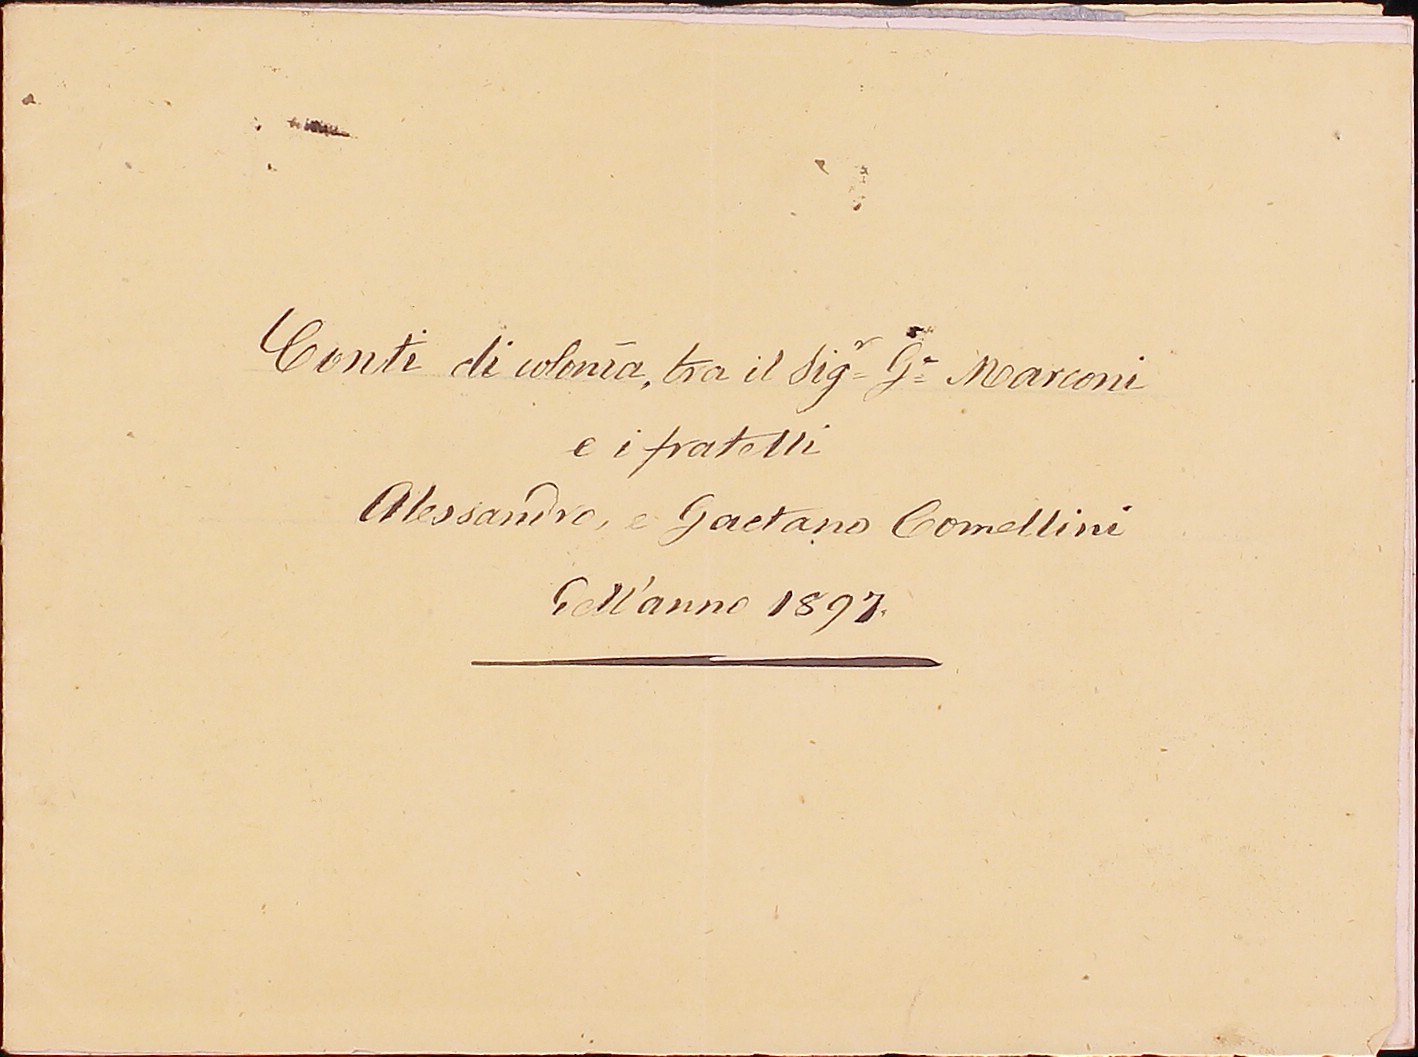 Conti di colonīa, tra il Sigʳ G.ᵉ Marconi
e i fratelli
Alessandro, e Gaetano Comellini
Dell'anno 1897.